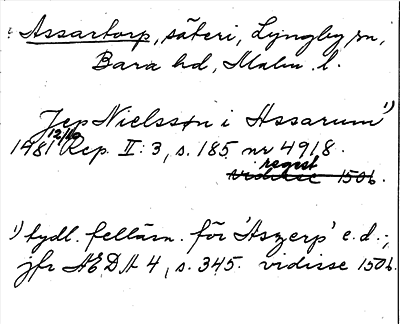 Assartorp, säteri, Lyngby sn,
Bara hd, Malm. l.
Jep Nielssøn i Assarum¹⁾
1481 12/10 Rep. II: 3, s. 185 nr 4918.
regest
vidisse 1506.
¹⁾ tydl. felläsn. för 'Aszerp' e.d.;
jfr ÆDA 4, s. 345. vidisse 1506.